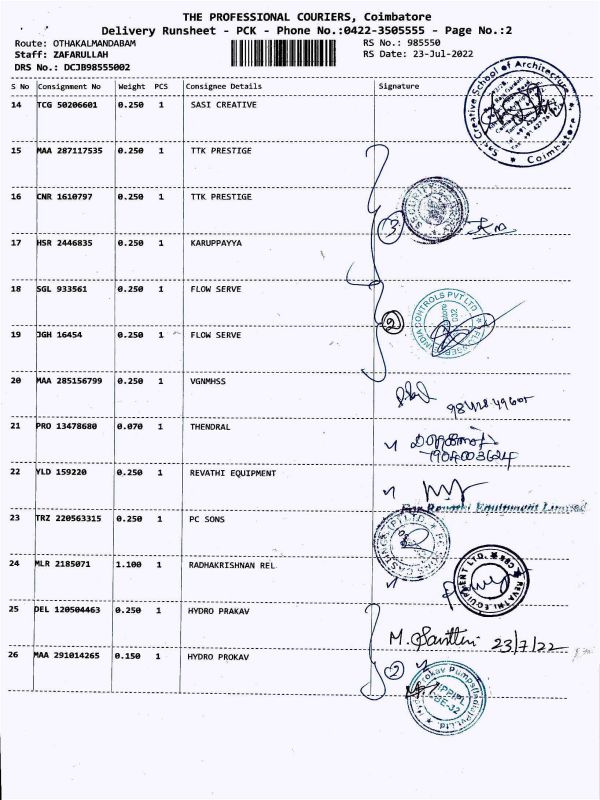 THE PROFESSIONAL COURIERS, Coimbatore
Delivery Runsheet - PCK - Phone No.:0422-3505555 - Page No.:2
Route: OTHAKALMANDABAM RS No.: 985550
Staff: ZAFARULLAH RS Date: 23-Jul-2022
DRS No.: DCJB98555002
S No Consignment No Weight PCS Consignee Details Signature
14 TCG 50206601 0.250 1 SASI CREATIVE
Sasi Creative School of Architecture
Coimbatore
15 MAA 287117535 0.250 1 TTK PRESTIGE
16 CNR 1610797 0.250 1 TTK PRESTIGE
SECURITY
3
17 HSR 2446835 0.250 1 KARUPPAYYA
18 SGL 933561 0.250 1 FLOW SERVE
INDIA CONTROLS PVT LTD
2
19 JGH 16454 0.250 1 FLOW SERVE
20 MAA 285156799 0.250 1 VGNMHSS
21 PRO 13478680 0.070 1 THENDRAL
1904003624
22 YLD 159220 0.250 1 REVATHI EQUIPMENT
For Revathi Equipment Limited
23 TRZ 220563315 0.250 1 PC SONS
24 MLR 2185071 1.100 1 RADHAKRISHNAN REL
REVATHI EQUIPMENT LTD. CBE
25 DEL 120504463 0.250 1 HYDRO PRAKAV
23/7/22
26 MAA 291014265 0.150 1 HYDRO PROKAV
2
Hydro Prokav Pumps (India) Pvt. Ltd.
CBE-32